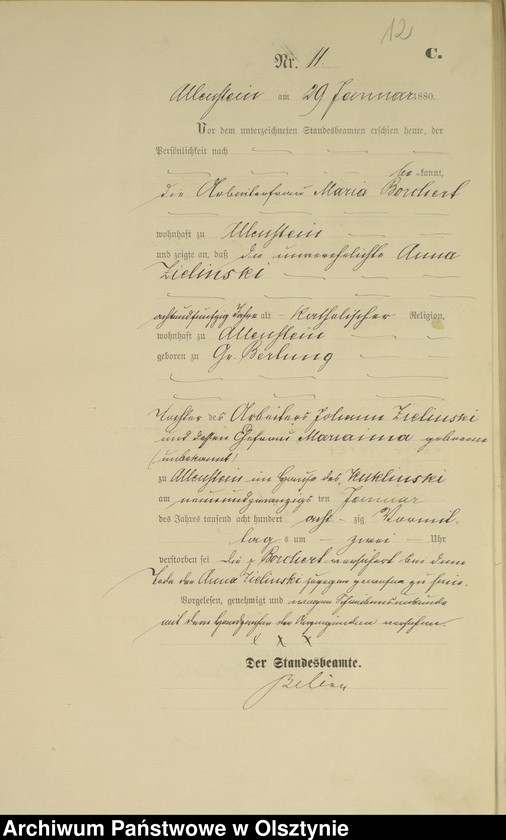 12
C.
Nr. 11.
Allenstein am 29 Januar 1880.
Vor dem unterzeichneten Standesbeamten erschien heute, der
Persönlichkeit nach
be kannt,
die Arbeiterfrau Maria Borchert
wohnhaft zu Allenstein
und zeigte an, daß die unverehelichte Anna
Zielinski
achtundfünfzig Jahre alt katholischer Religion,
wohnhaft zu Allenstein
geboren zu Gr. Bertung
Tochter des Arbeiters Johann Zielinski
und dessen Ehefrau Marianna geborene
(unbekannt)
zu Allenstein im Hause des Kuklinski
am neunundzwanzigsten Januar
des Jahres tausend acht hundert acht zig Vormit
tags um zwei Uhr
verstorben sei die Borchert versichert bei dem
Tode der Anna Zielinski zugegen gewesen zu sein.
Vorgelesen, genehmigt und wegen Schreibensunkunde
mit dem Handzeichen der versehen.
x x x
Der Standesbeamte.
Archiwum Państwowe w Olsztynie